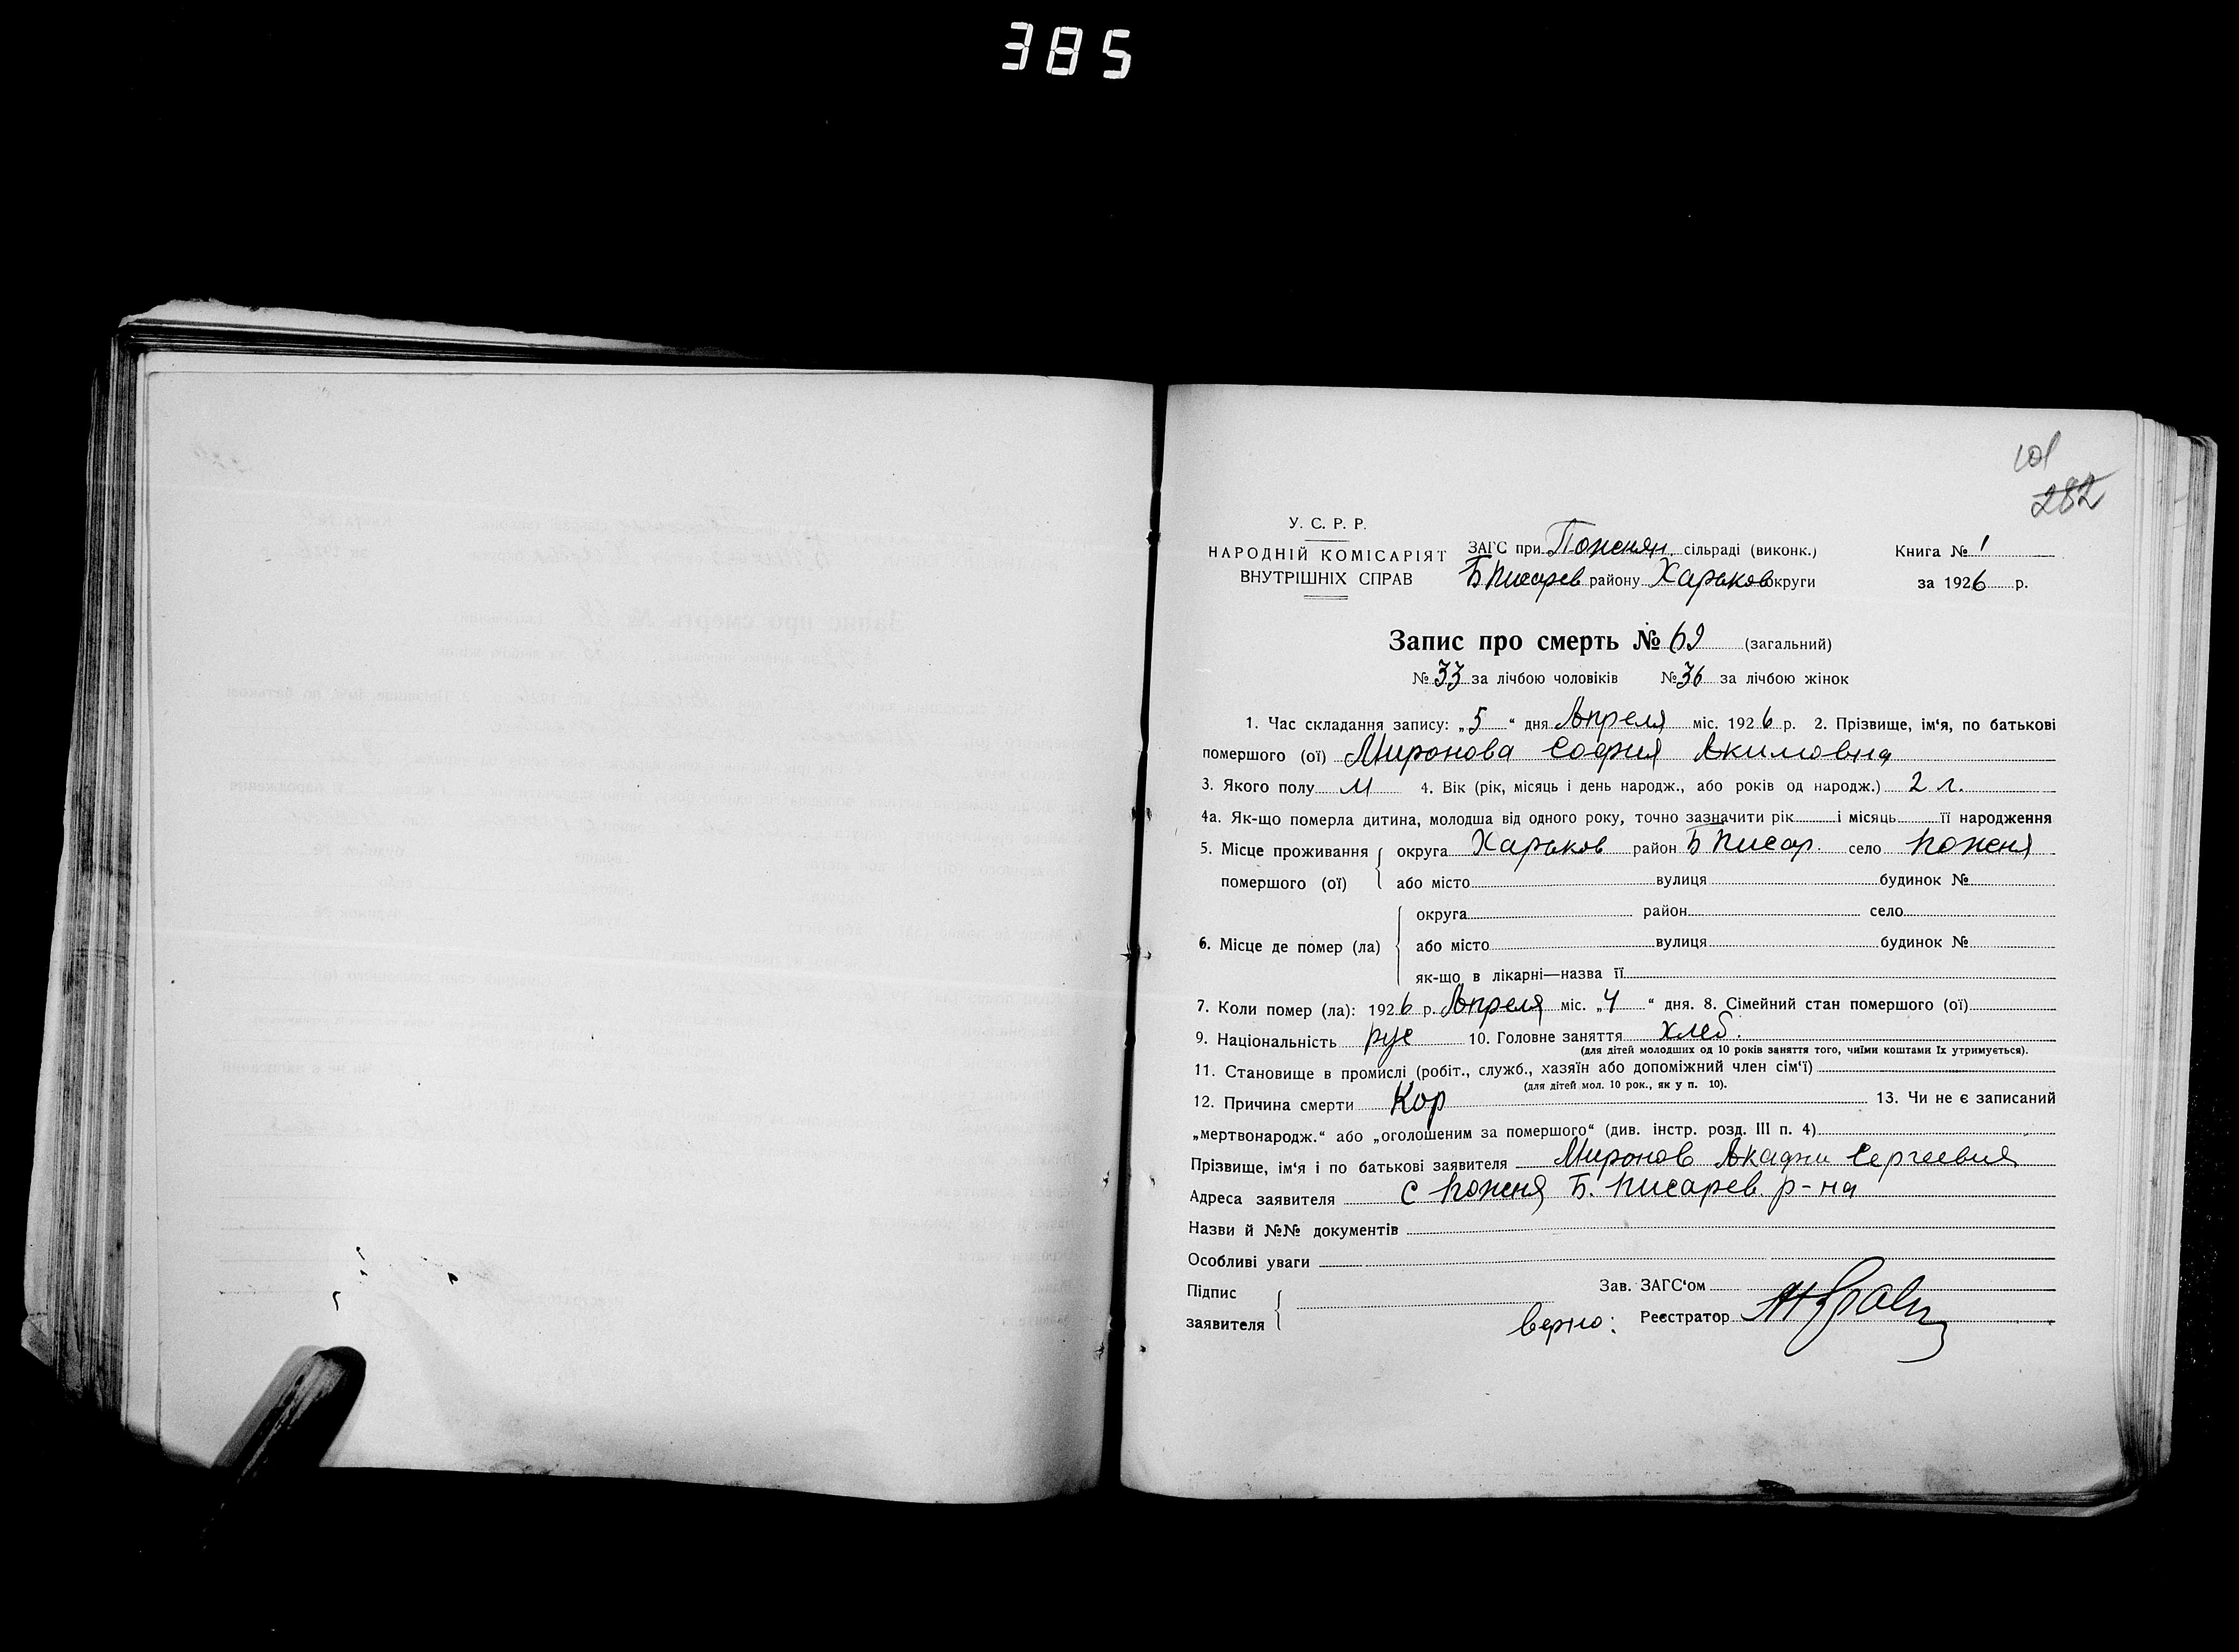 385
101
282
У. С. Р. Р.
НАРОДНІЙ КОМІСАРІЯТ
ВНУТРІШНІХ СПРАВ
ЗАГС при Пожнян. сільраді (виконк.)
Б Писарев району Харьков округи
Книга № 1
за 1926 р.
Запис про смерть № 69 (загальний)
№ 33 за лічбою чоловіків № 36 за лічбою жінок
1. Час складання запису: „5“ дня Апреля міс. 1926 р. 2. Прізвище, ім‘я, по батькові
помершого (ої) Миронова София Акимовна
3. Якого полу М 4. Вік (рік, місяць і день народж., або років од народж.) 2 л.
4а. Як-що померла дитина, молодша від одного року, точно зазначити рік і місяць її народження
5. Місце проживання помершого (ої) округа Харьков район Б Писар. село Пожня
або місто вулиця будинок №
6. Місце де помер (ла) округа район село
або місто вулиця будинок №
як-що в лікарні—назва її
7. Коли помер (ла): 1926 р. Апреля міс. „4“ дня. 8. Сімейний стан помершого (ої)
9. Національність рус 10. Головне заняття хлеб.
(для дітей молодших од 10 років заняття того, чиїми коштами їх утримується).
11. Становище в промислі (робіт., служб., хазяїн або допоміжний член сім‘ї)
(для дітей мол. 10 рок., як у п. 10).
12. Причина смерти Кор 13. Чи не є записаний
„мертвонародж.“ або „оголошеним за помершого“ (див. інстр. розд. III п. 4)
Прізвище, ім‘я і по батькові заявителя Миронов Сергеевич
Адреса заявителя с Пожня Б. Писарев. р-на
Назви й №№ документів
Особливі уваги
Підпис заявителя
Зав. ЗАГС‘ом
верно: Реєстратор